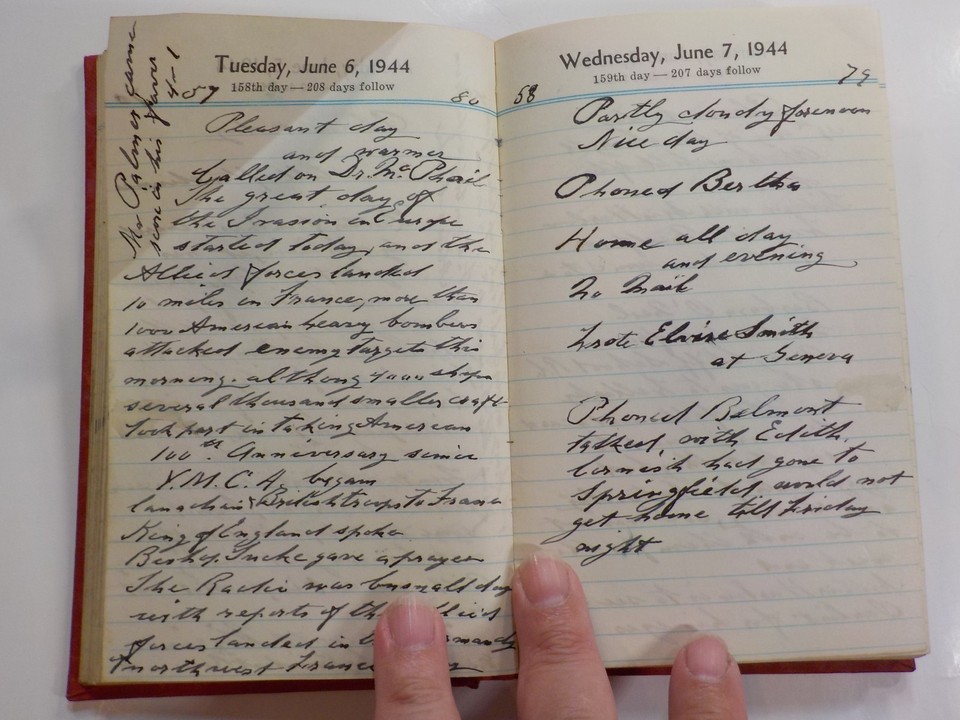 Mr Palmer came
since in his
4-1
Tuesday, June 6, 1944
158th day — 208 days follow
57 80
Pleasant day
and warmer
Called on Dr. McPhail
The great day of
the Invasion in urope
started today, and the
Allied forces landed
10 miles in France, more than
1000 American heavy bombers
attacked enemy targets this
morning. although 4000 ships
several thousand smaller craft
took part in taking American
100th Anniversary since
Y.M.C.A. began
Canadian British troops to France
King of England spoke
Bishop Tucke gave a prayer
The Radio was busy all day
with reports of the
forces landed in
northwest France
Wednesday, June 7, 1944
159th day — 207 days follow
58 79
Partly cloudy forenoon
Nice day
Phoned Bertha
Home all day
and evening
No Mail
Wrote Elvire Smith
at Geneva
Phoned Belmont
talked, with Edith.
Cornish had gone to
Springfield, would not
get home till Friday
night